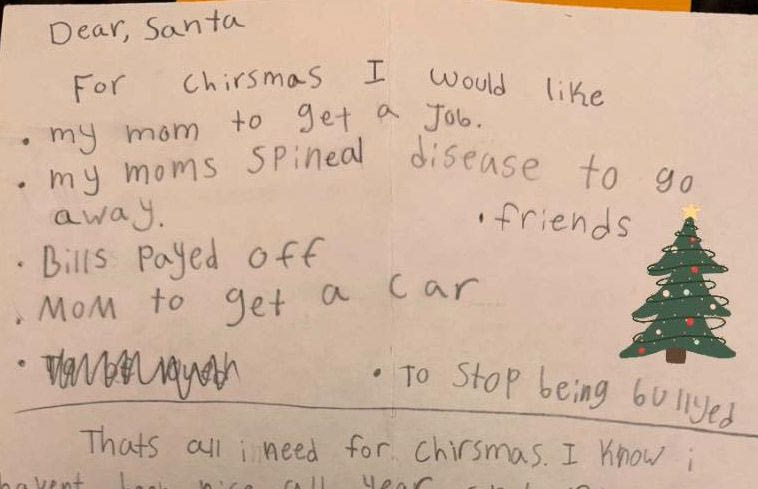 Dear, Santa
For Chirsmas I would like
• my mom to get a Job.
• my moms Spineal disease to go
away.
• friends
• Bills payed off
• MOM to get a car
• To Stop being bullyed
Thats all i need for Chirsmas. I Know i
havent been nice all year